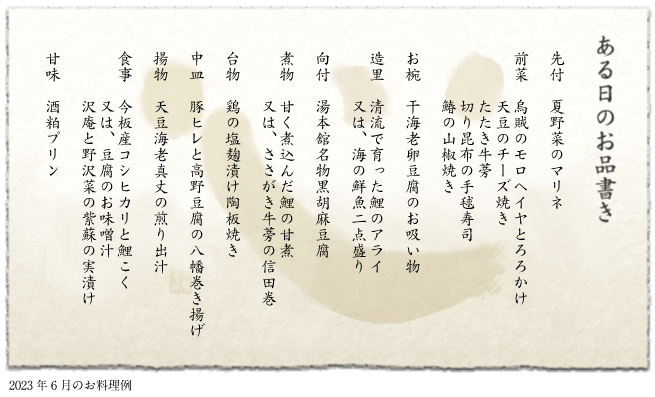 ある日のお品書き
先付　夏野菜のマリネ
前菜　烏賊のモロヘイヤとろろかけ
天豆のチーズ焼き
たたき牛蒡
切り昆布の手毬寿司
鰆の山椒焼き
お椀　干海老卵豆腐のお吸い物
造里　清流で育った鯉のアライ
又は、海の鮮魚二点盛り
向付　湯本舘名物黒胡麻豆腐
煮物　甘く煮込んだ鯉の甘煮
又は、ささがき牛蒡の信田巻
台物　鶏の塩麹漬け陶板焼き
中皿　豚ヒレと高野豆腐の八幡巻き揚げ
揚物　天豆海老真丈の煎り出汁
食事　今板産コシヒカリと鯉こく
又は、豆腐のお味噌汁
沢庵と野沢菜の紫蘇の実漬け
甘味　酒粕プリン
2023 年 6 月のお料理例